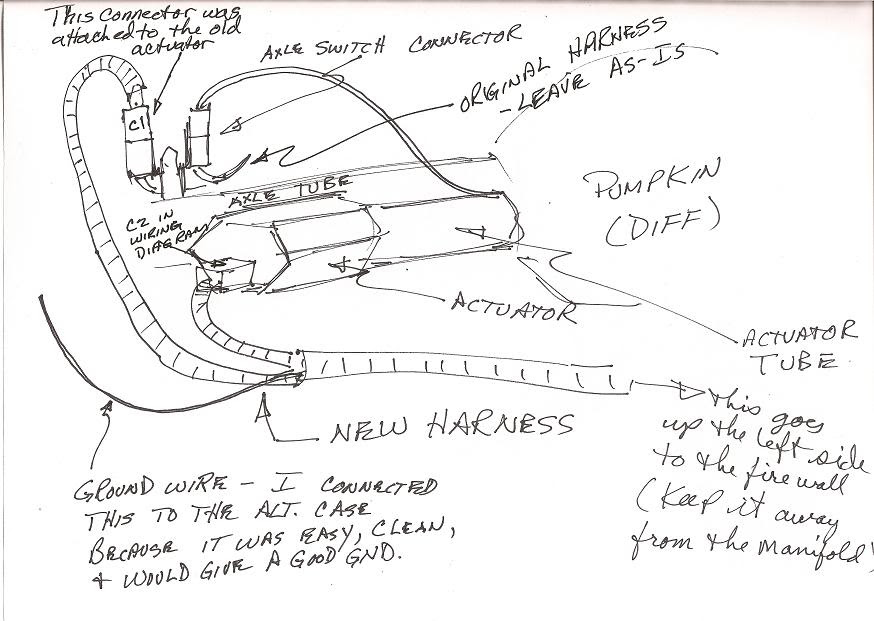 This connector was
attached to the old
actuator
AXLE SWITCH CONNECTOR
ORIGINAL HARNESS
- LEAVE AS-IS
C1
AXLE TUBE
PUMPKIN
(DIFF)
C2 IN
WIRING
DIAGRAM
ACTUATOR
ACTUATOR
TUBE
NEW HARNESS
This goes
up the left side
to the firewall
(Keep it away
from the manifold)
GROUND WIRE - I CONNECTED
THIS TO THE ALT. CASE
BECAUSE IT WAS EASY, CLEAN,
+ WOULD GIVE A GOOD GND.